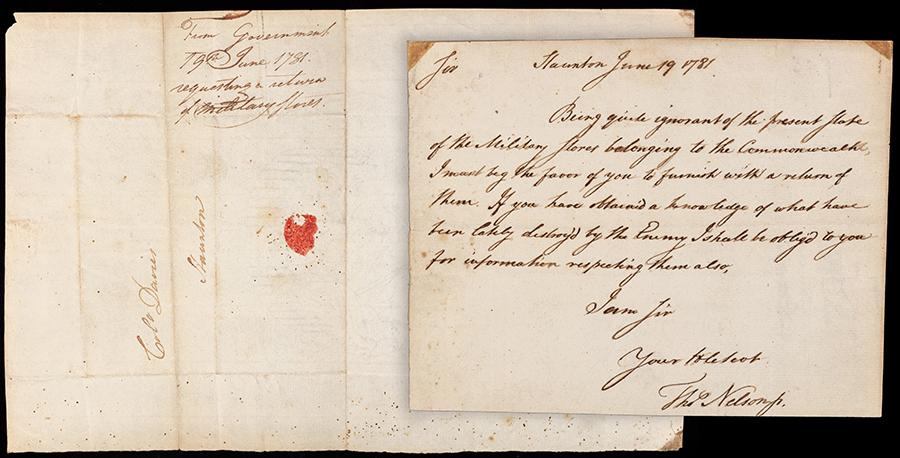 From Government
19th June 1781.
requesting a return
of Military stores.
Colo Davis
Staunton
Sir Staunton June 19 1781
Being quite ignorant of the present state
of the Military stores belonging to the Commonwealth,
I must beg the favor of you to furnish with a return of
them. If you have obtained a knowledge of what have
been lately destroy'd by the Enemy I shall be oblig'd to you
for information respecting them also,
I am Sir
Your Hble servt
Thos Nelson jr.